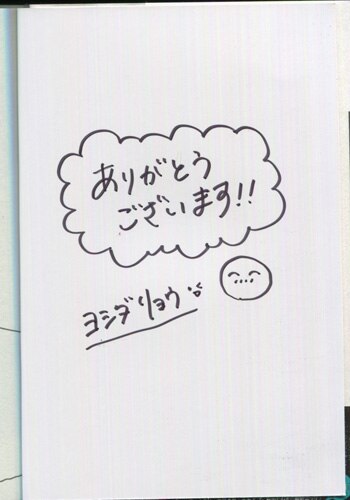 ありがとう
ございます!!
ヨシダリョウ